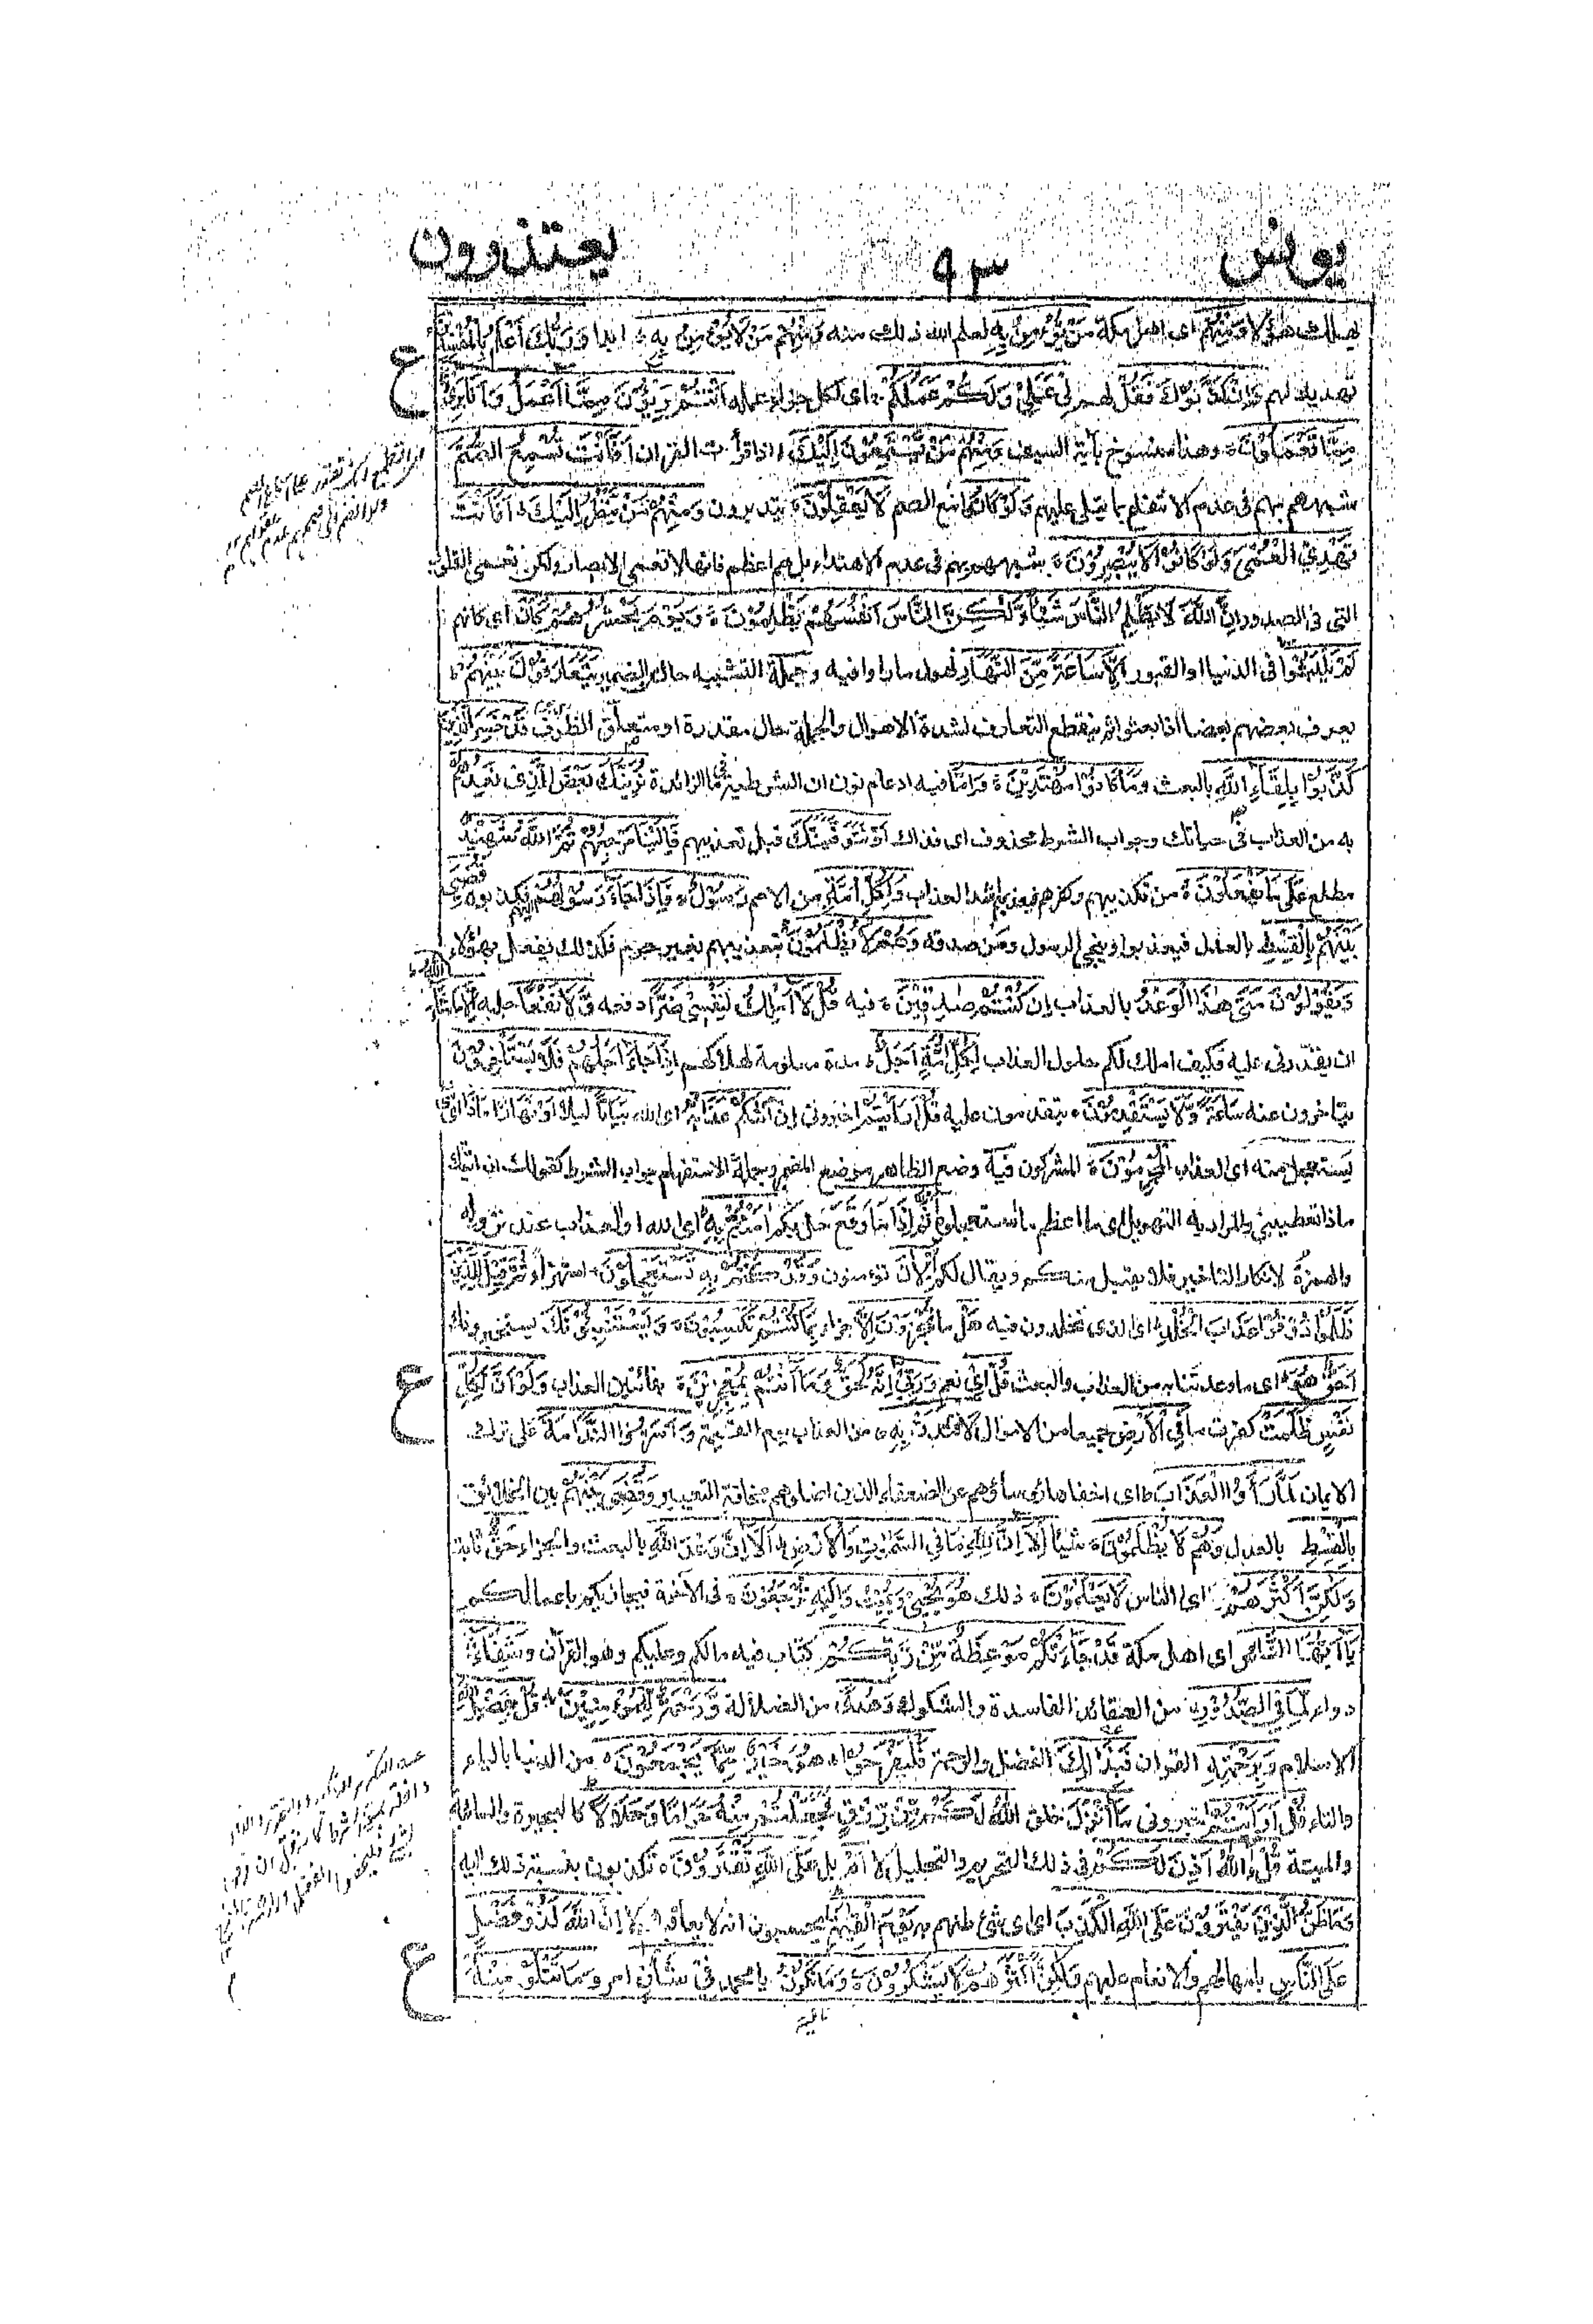 يونس ٩٣ يعتذرون
يهلك هؤلاء وَمِنْهُمْ اى اهل مكة مَنْ يُّؤْمِنُ بِهٖ لعلم الله ذلك منه وَمِنْهُمْ مَنْ لَا يُؤْمِنُ بِهٖ ابدا وَرَبُّكَ اَعْلَمُ بِالْمُفْسِدِيْنَ
تهديد لهم وَاِنْ كَذَّبُوْكَ فَقُلْ لهم لِىْ عَمَلِىْ وَلَكُمْ عَمَلُكُمْ اى لكل جزاء عمله اَنْتُمْ بَرِيْئُوْنَ مِمَّا اَعْمَلُ وَاَنَا بَرِىْءٌ
مِمَّا تَعْمَلُوْنَ وهذا منسوخ بآية السيف وَمِنْهُمْ مَنْ يَّسْتَمِعُوْنَ اِلَيْكَ اذا قرأت القران اَفَاَنْتَ تُسْمِعُ الصُّمَّ
شبههم بهم فى عدم الانتفاع بما يتلى عليهم وَلَوْ كَانُوْا مع الصم لَا يَعْقِلُوْنَ يتدبرون وَمِنْهُمْ مَنْ يَّنْظُرُ اِلَيْكَ اَفَاَنْتَ
تَهْدِى الْعُمْىَ وَلَوْ كَانُوْا لَا يُبْصِرُوْنَ شبههم بهم فى عدم الاهتداء بل هم اعظم فانها لا تعمى الابصار ولكن تعمى القلوب
التى فى الصدور اِنَّ اللّٰهَ لَا يَظْلِمُ النَّاسَ شَيْئًا وَّلٰكِنَّ النَّاسَ اَنْفُسَهُمْ يَظْلِمُوْنَ وَيَوْمَ يَحْشُرُهُمْ كَاَنْ اى كانهم
لَمْ يَلْبَثُوْا فى الدنيا او القبور اِلَّا سَاعَةً مِّنَ النَّهَارِ لهول ما راوا فيه وجملة التشبيه حال من الضمير يَتَعَارَفُوْنَ بَيْنَهُمْ
يعرف بعضهم بعضا اذا بعثوا ثم ينقطع التعارف لشدة الاهوال والجملة حال مقدرة او متعلق الظرف قَدْ خَسِرَ الَّذِيْنَ
كَذَّبُوْا بِلِقَاءِ اللّٰهِ بالبعث وَمَا كَانُوْا مُهْتَدِيْنَ وَاِمَّا فيه ادغام نون ان الشرطية فى ما الزائدة نُرِيَنَّكَ بَعْضَ الَّذِىْ نَعِدُهُمْ
به من العذاب فى حياتك وجواب الشرط محذوف اى فذاك اَوْ نَتَوَفَّيَنَّكَ قبل تعذيبهم فَاِلَيْنَا مَرْجِعُهُمْ ثُمَّ اللّٰهُ شَهِيْدٌ
مطلع عَلٰى مَا يَفْعَلُوْنَ من تكذيبهم وكفرهم فيعذبهم اشد العذاب وَلِكُلِّ اُمَّةٍ من الامم رَسُوْلٌ فَاِذَا جَاءَ رَسُوْلُهُمْ اليهم فكذبوه قُضِىَ
بَيْنَهُمْ بِالْقِسْطِ بالعدل فيعذبوا وينجى الرسول ومن صدقه وَهُمْ لَا يُظْلَمُوْنَ بتعذيبهم بغير جرم فكذلك يفعل بهؤلاء
وَيَقُوْلُوْنَ مَتٰى هٰذَا الْوَعْدُ بالعذاب اِنْ كُنْتُمْ صٰدِقِيْنَ فيه قُلْ لَا اَمْلِكُ لِنَفْسِىْ ضَرًّا ادفعه وَّلَا نَفْعًا اجلبه اِلَّا مَا شَاءَ اللّٰهُ
ان يقدرنى عليه فكيف املك لكم حلول العذاب لِكُلِّ اُمَّةٍ اَجَلٌ مدة معلومة لهلاكهم اِذَا جَاءَ اَجَلُهُمْ فَلَا يَسْتَاْخِرُوْنَ
يتاخرون عنه سَاعَةً وَّلَا يَسْتَقْدِمُوْنَ يتقدمون عليه قُلْ اَرَاَيْتُمْ اخبرونى اِنْ اَتٰىكُمْ عَذَابُهٗ اى الله بَيَاتًا ليلا اَوْ نَهَارًا مَّاذَا اى شئ
يَسْتَعْجِلُ مِنْهُ اى العذاب الْمُجْرِمُوْنَ المشركون فيه وضع الظاهر موضع المضمر وجملة الاستفهام جواب الشرط كقولك ان اتيتك
ماذا تعطينى والمراد به التهويل اى ما اعظم ما استعجلوه اَثُمَّ اِذَا مَا وَقَعَ حل بكم اٰمَنْتُمْ بِهٖ اى الله او العذاب عند نزوله
والهمزة لانكار التاخير فلا يقبل منكم ويقال لكم اٰلْئٰنَ تؤمنون وَقَدْ كُنْتُمْ بِهٖ تَسْتَعْجِلُوْنَ استهزاء ثُمَّ قِيْلَ لِلَّذِيْنَ
ظَلَمُوْا ذُوْقُوْا عَذَابَ الْخُلْدِ اى الذى تخلدون فيه هَلْ مَا تُجْزَوْنَ اِلَّا جزاء بِمَا كُنْتُمْ تَكْسِبُوْنَ وَيَسْتَنْبِئُوْنَكَ يستخبرونك
اَحَقٌّ هُوَ اى ما وعدتنا به من العذاب والبعث قُلْ اِىْ نعم وَرَبِّىْ اِنَّهٗ لَحَقٌّ وَمَا اَنْتُمْ بِمُعْجِزِيْنَ بفائتين العذاب وَلَوْ اَنَّ لِكُلِّ
نَفْسٍ ظَلَمَتْ كفرت مَا فِى الْاَرْضِ جميعا من الاموال لَافْتَدَتْ بِهٖ من العذاب يوم القيمة وَاَسَرُّوا النَّدَامَةَ على ترك
الايمان لَمَّا رَاَوُا الْعَذَابَ اى اخفاها رؤساؤهم عن الضعفاء الذين اضلوهم مخافة التعيير وَقُضِىَ بَيْنَهُمْ بين الخلائق
بِالْقِسْطِ بالعدل وَهُمْ لَا يُظْلَمُوْنَ شيئا اَلَا اِنَّ لِلّٰهِ مَا فِى السَّمٰوٰتِ وَالْاَرْضِ اَلَا اِنَّ وَعْدَ اللّٰهِ بالبعث والجزاء حَقٌّ ثابت
وَلٰكِنَّ اَكْثَرَهُمْ اى الناس لَا يَعْلَمُوْنَ ذلك هُوَ يُحْيٖ وَيُمِيْتُ وَاِلَيْهِ تُرْجَعُوْنَ فى الآخرة فيجازيكم باعمالكم
يٰاَيُّهَا النَّاسُ اى اهل مكة قَدْ جَاءَتْكُمْ مَوْعِظَةٌ مِّنْ رَّبِّكُمْ كتاب فيه مالكم وعليكم وهو القرآن وَشِفَاءٌ
دواء لِّمَا فِى الصُّدُوْرِ من العقائد الفاسدة والشكوك وَهُدًى من الضلالة وَّرَحْمَةٌ لِّلْمُؤْمِنِيْنَ قُلْ بِفَضْلِ اللّٰهِ
الاسلام وَبِرَحْمَتِهٖ القران فَبِذٰلِكَ الفضل والرحمة فَلْيَفْرَحُوْا هُوَ خَيْرٌ مِّمَّا يَجْمَعُوْنَ من الدنيا بالياء
والتاء قُلْ اَرَاَيْتُمْ اخبرونى مَا اَنْزَلَ خلق اللّٰهُ لَكُمْ مِّنْ رِّزْقٍ فَجَعَلْتُمْ مِّنْهُ حَرَامًا وَّحَلٰلًا كالبحيرة والسائبة
والميتة قُلْ اٰللّٰهُ اَذِنَ لَكُمْ فى ذلك التحريم والتحليل لا اَمْ بل عَلَى اللّٰهِ تَفْتَرُوْنَ تكذبون بنسبة ذلك اليه
وَمَا ظَنُّ الَّذِيْنَ يَفْتَرُوْنَ عَلَى اللّٰهِ الْكَذِبَ اى اى شئ ظنهم به يَوْمَ الْقِيٰمَةِ ايحسبون انه لا يعاقبهم لا اِنَّ اللّٰهَ لَذُوْ فَضْلٍ
عَلَى النَّاسِ بامهالهم والانعام عليهم وَلٰكِنَّ اَكْثَرَهُمْ لَا يَشْكُرُوْنَ وَمَا تَكُوْنُ يا محمد فِىْ شَاْنٍ امر وَمَا تَتْلُوْ مِنْهُ
ع
ع
ع